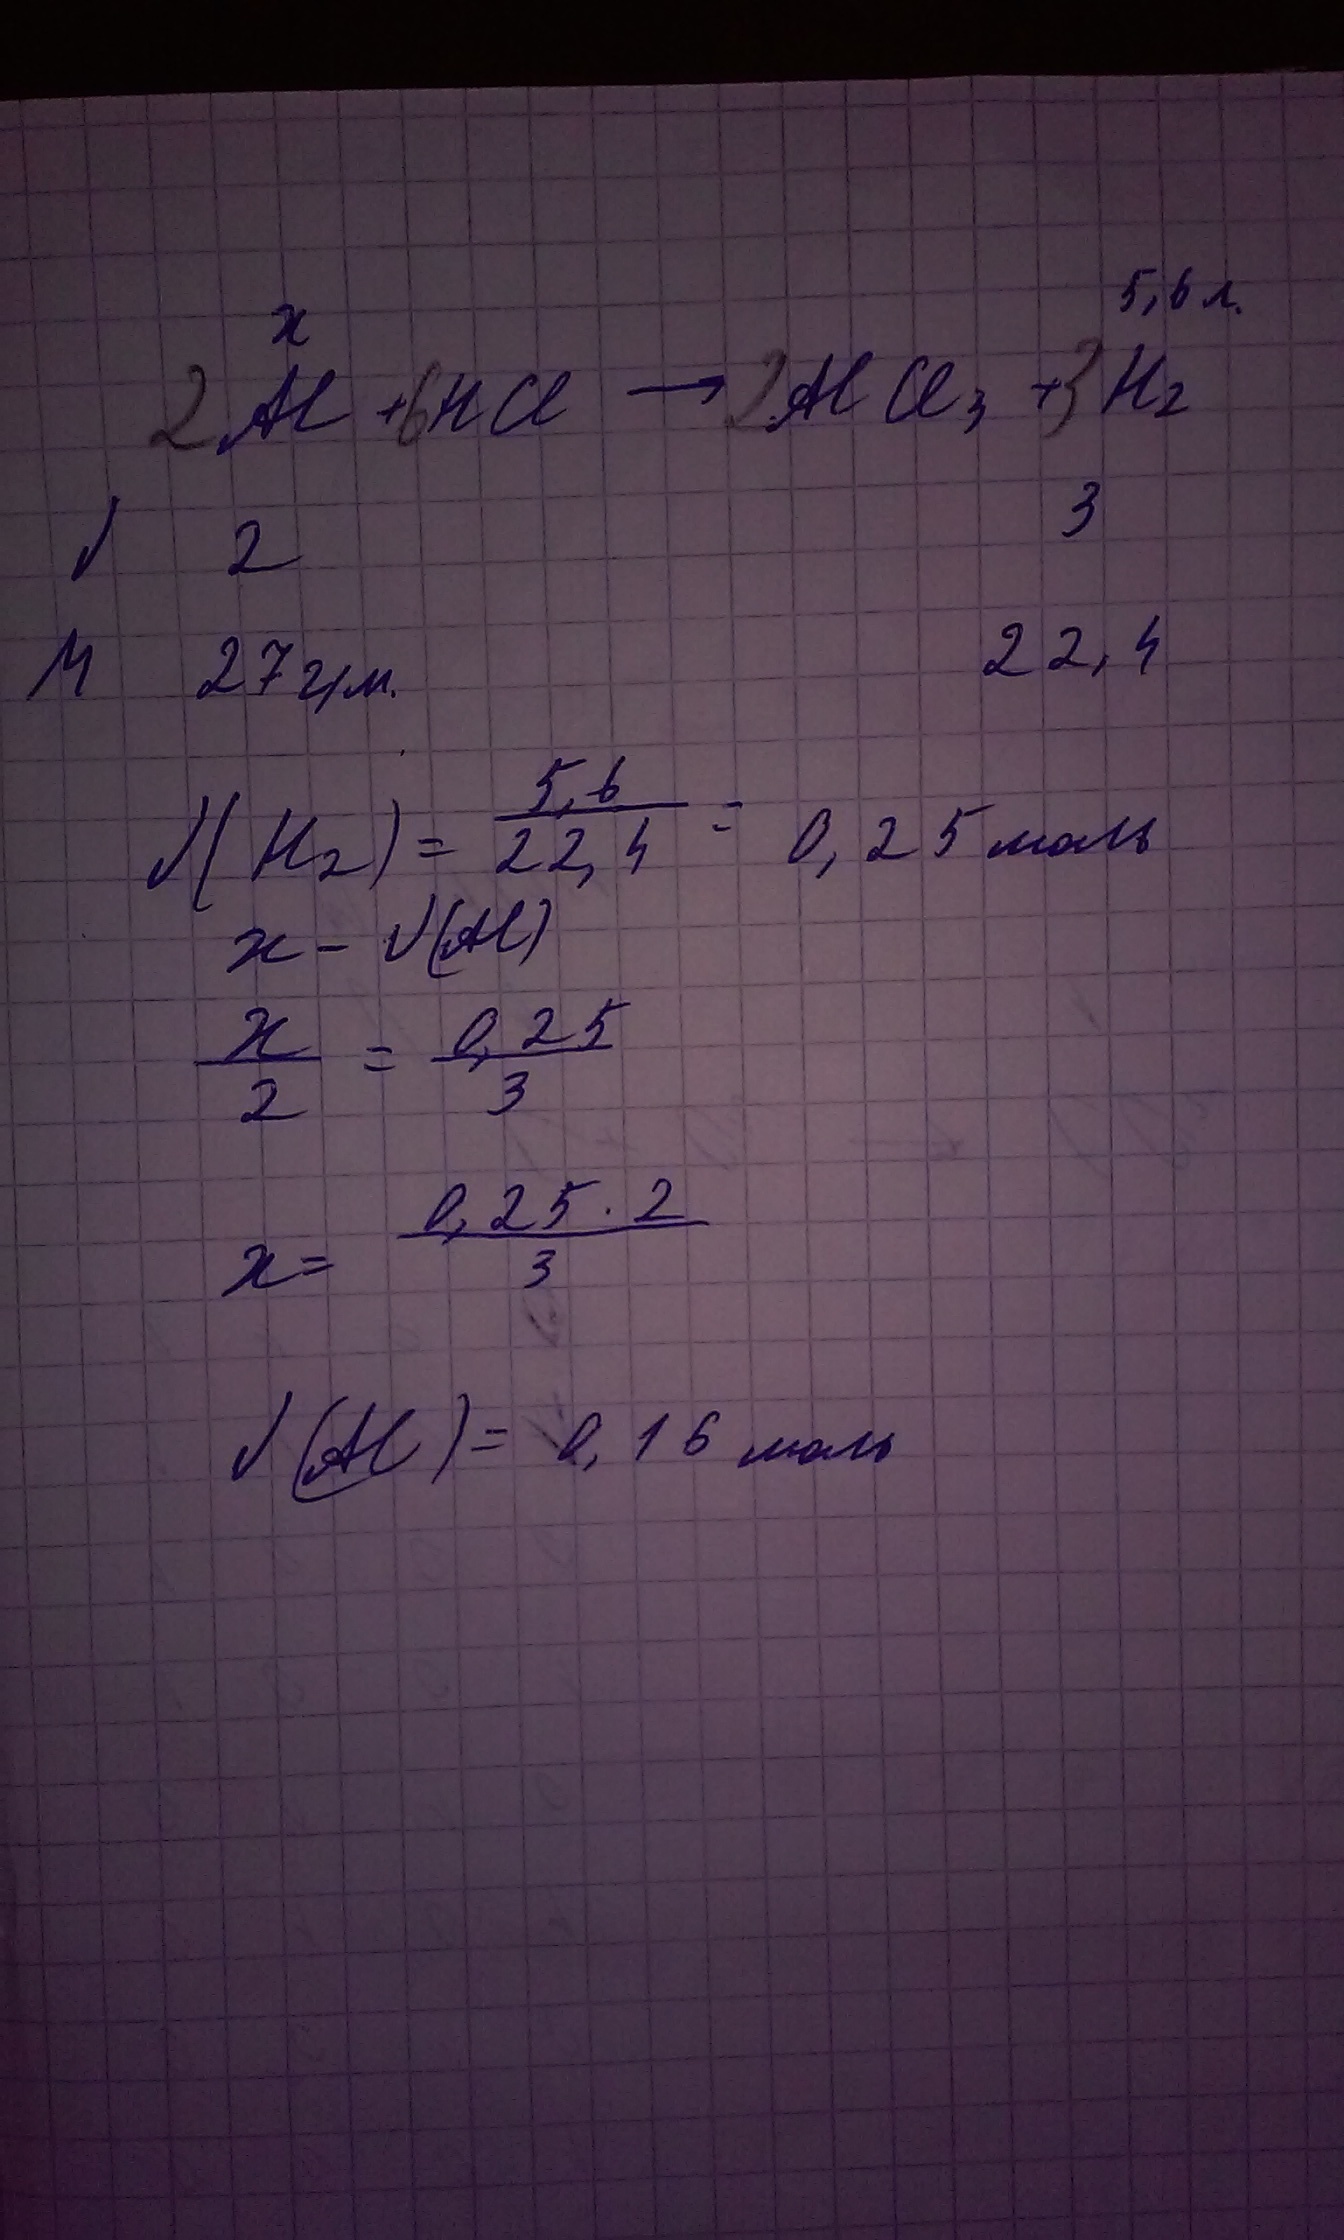 x 5,6 л.
2Al + 6HCl → 2AlCl₃ + 3H₂
ν 2 3
M 27 г/м. 22,4
ν(H₂) = 5,6/22,4 = 0,25 моль
x – ν(Al)
x/2 = 0,25/3
x = 0,25·2/3
ν(Al) = 0,16 моль